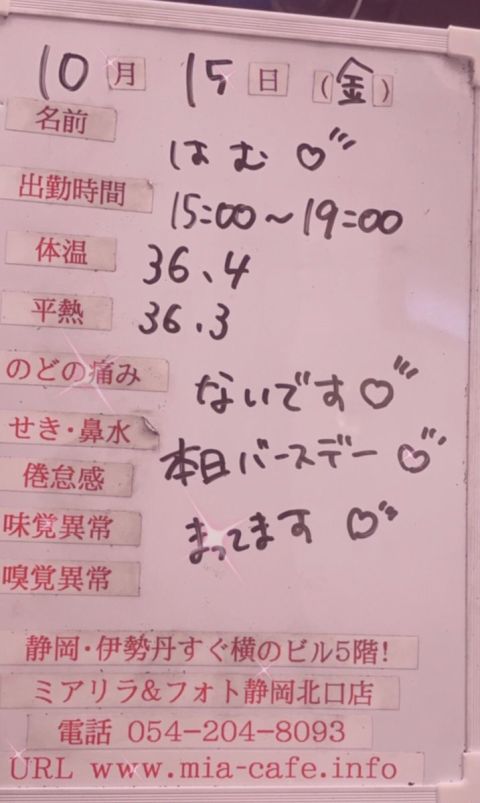 10月 15日(金)
名前 はむ♡
出勤時間 15:00〜19:00
体温 36、4
平熱 36.3
のどの痛み ないです♡
せき・鼻水 本日バースデー♡
倦怠感
味覚異常 まってます♡
嗅覚異常
静岡・伊勢丹すぐ横のビル5階!
ミアリラ&フォト静岡北口店
電話 054-204-8093
URL www.mia-cafe.info